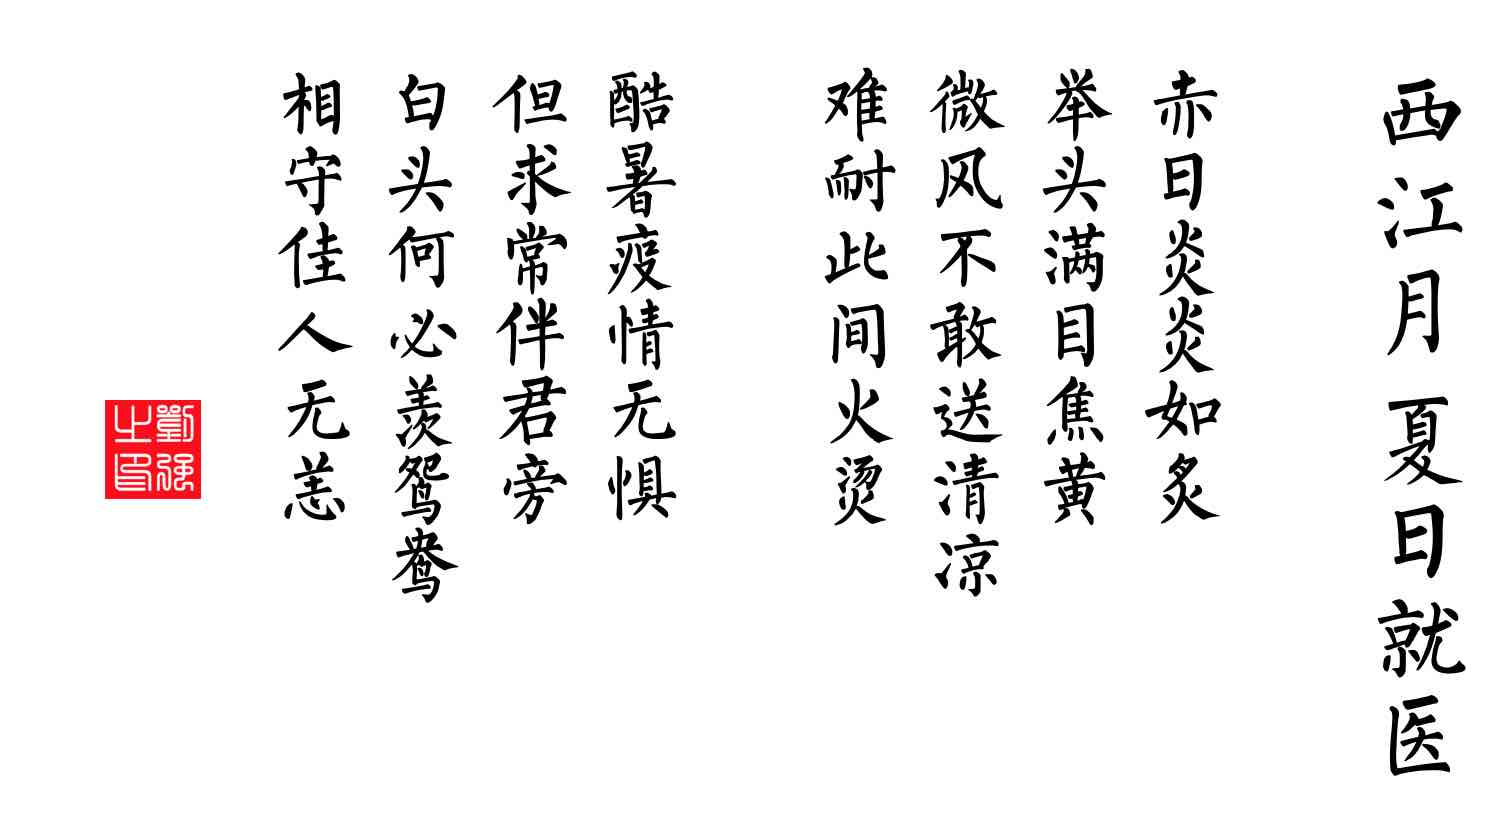 西江月 夏日就医
赤日炎炎如炙
举头满目焦黄
微风不敢送清凉
难耐此间火烫
酷暑疫情无惧
但求常伴君旁
白头何必羡鸳鸯
相守佳人无恙
劉强之印